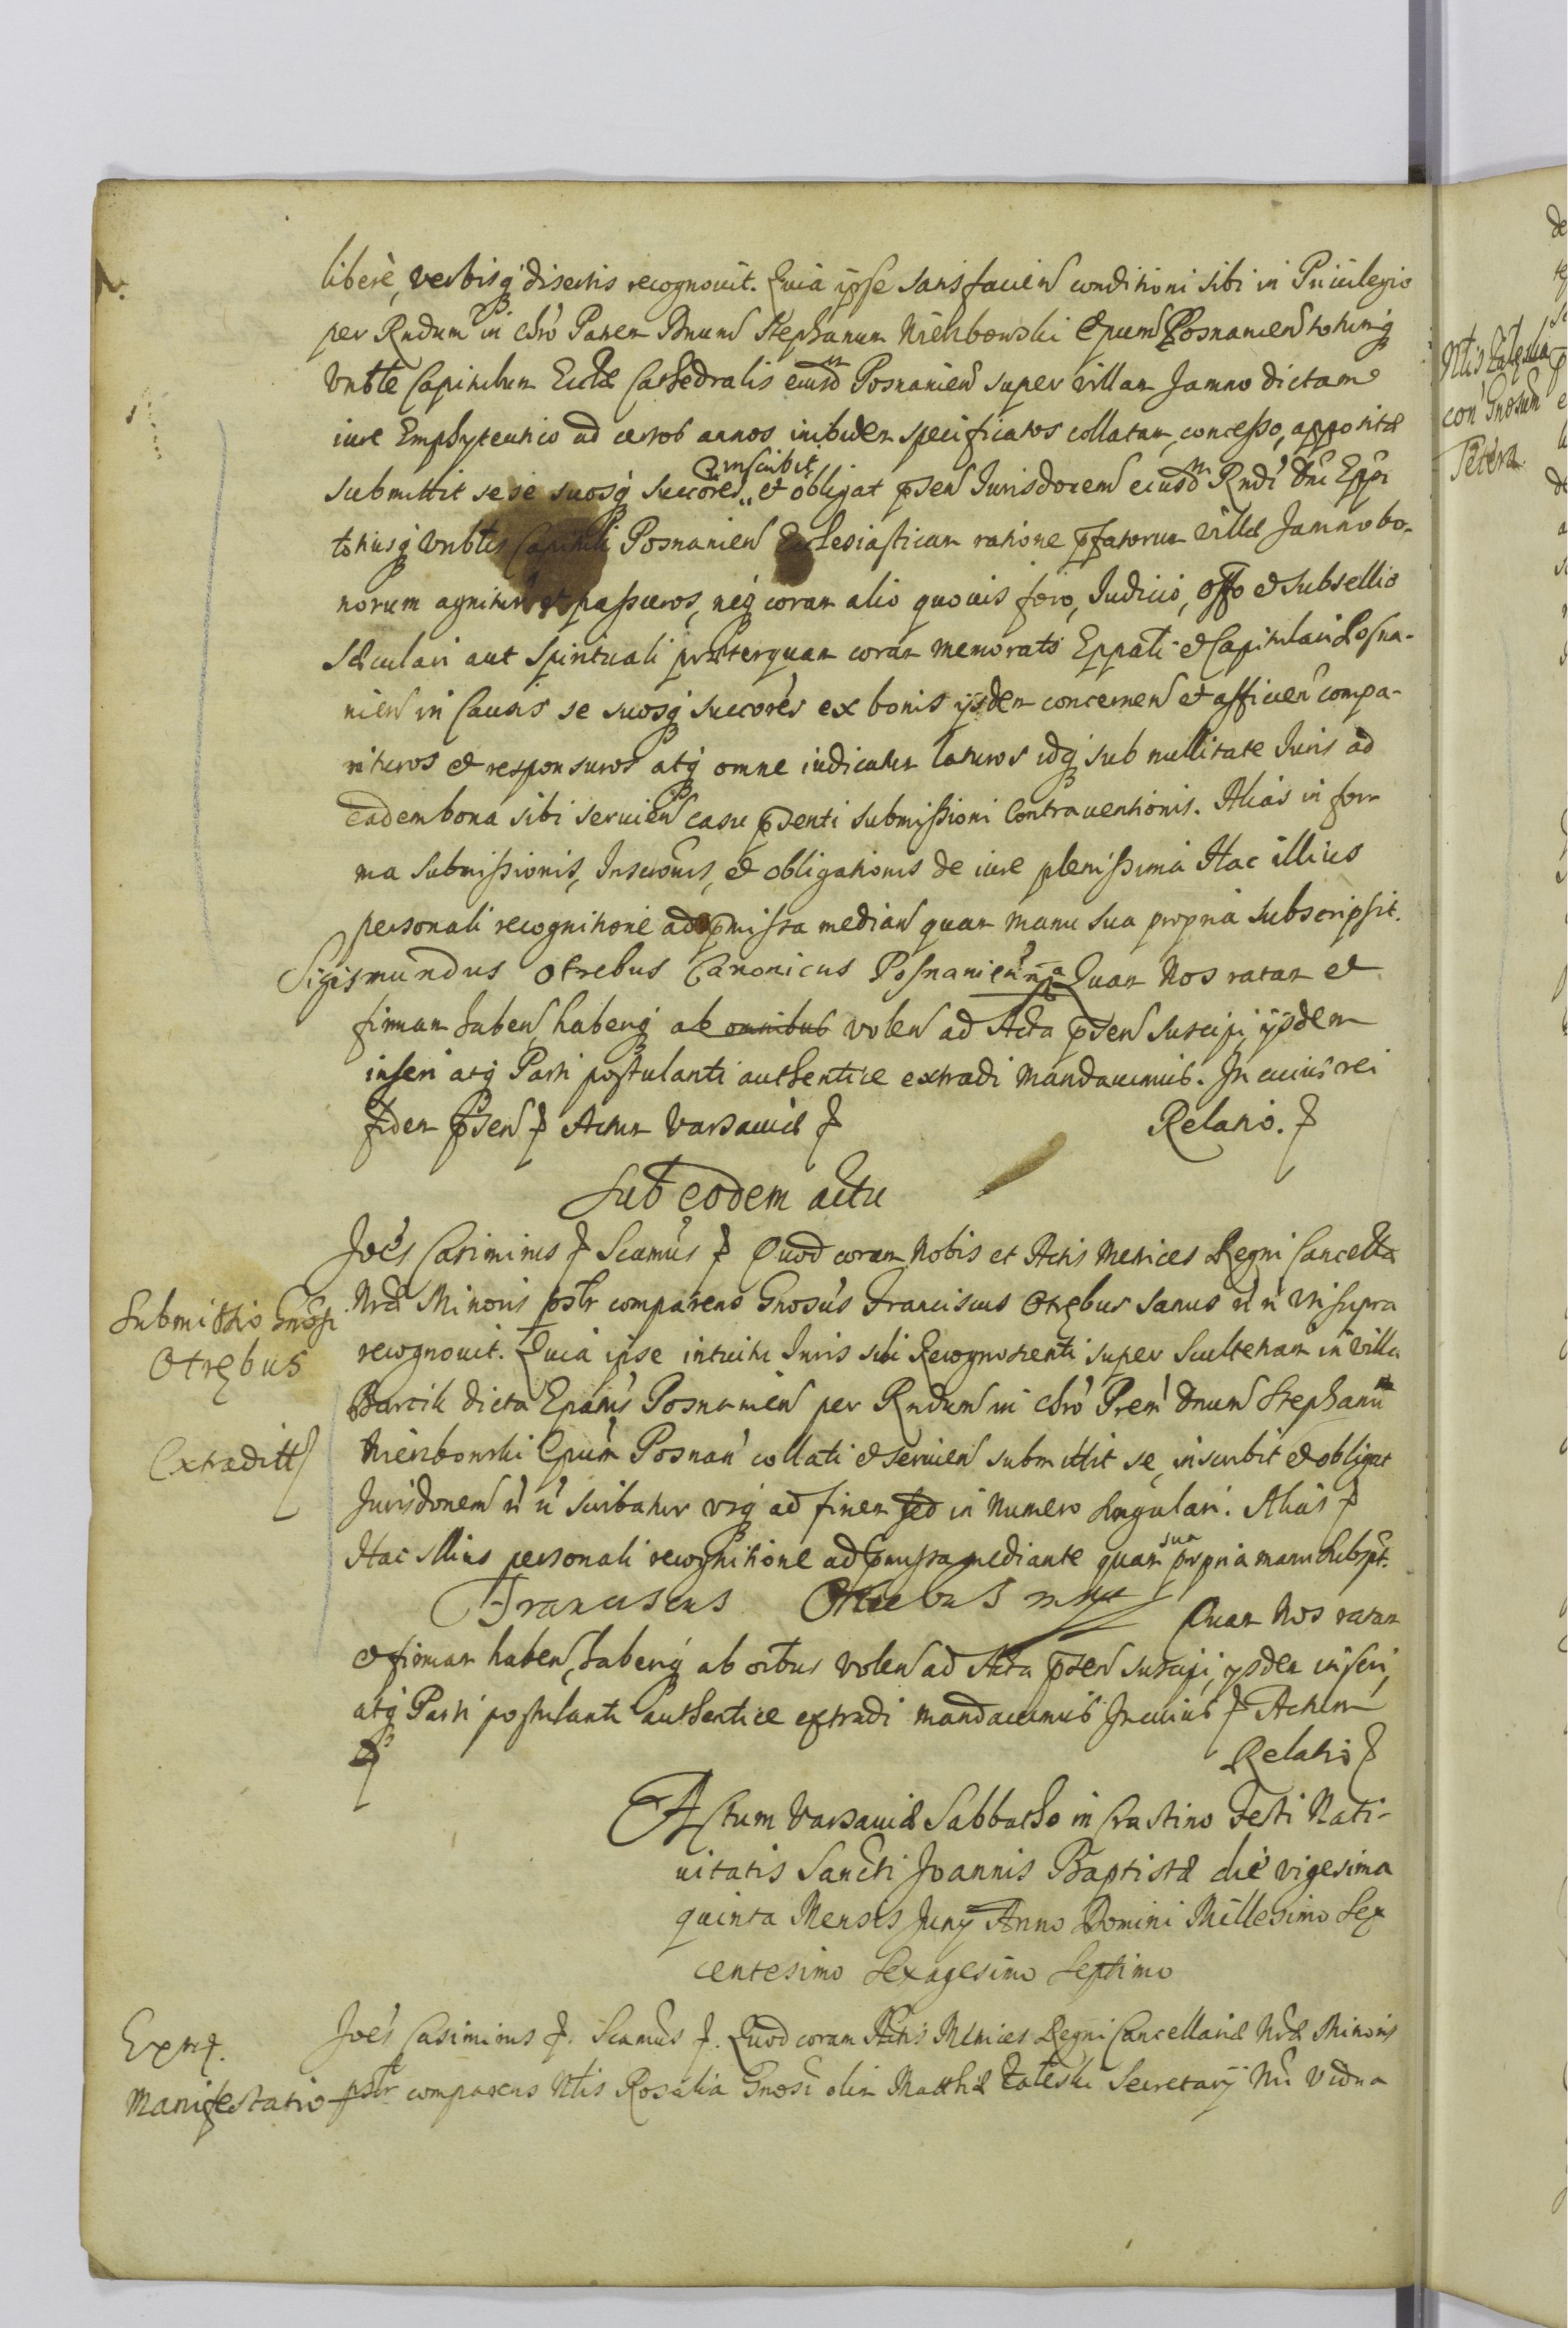 liberè, verbisq disertis recognouit. Quia ipse satisfacien conditioni sibi in Priuilegio
per Rndum in Chro Patrem Dnum Stephanum Wierzbowski Epum Posnanien totumq
Vnble Capitulum Eccle Cathedralis eiusdm Posnanien super villam Jamno dictam
iure Emphyteutico ad certos annos inibidem specificatos collatam, concesso, appositæ
submittit sese suosq succores, inscribit et obligat psen Iurisdonem eiusdm Rndi Dni Eppi
totiusq Vnblis Capituli Posnanien Ecclesiasticam ratione pfatorum villæ Jamno bo-
norum agnituros et passuros, neq coram alio quouis foro, Iudicio, offo et subsellio
sæculari aut spirituali præterquam coram memorato Eppali et Capitulari Posna-
nien in Causis se suosq succores ex bonis ijsdem concernen et afficien compa-
rituros et responsuros atq omne iudicatum laturos idq sub nullitate Iuris ad
eadem bona sibi seruien casu psenti submissioni Contrauentionis. Alias in for
ma submissionis, Inscronis, et obligationis de iure plenissima Hac illius
personali recognitione ad pmissa median quam manu sua propria subscripsit.
Sigismundus Otrebus Canonicus Posnanien mpa Quam Nos ratam et
firmam haben, haberiq ab omnibus volen ad Acta psen suscipi, ijsdem
inseri atq Parti postulanti authentice extradi mandauimus. In cuius rei
fidem psen Actum Varsauiæ Relatio.
Sub eodem actu
Joes Casimirus Scamus Quod coram Nobis et Actis Metrices Regni Cancella
Nræ Minoris psltr comparens Gnosus Franciscus Otrębus sanus ut ut supra
recognouit. Quia ipse intuitu Iuris sibi Recognoscenti super Scultetiam in villa
Barcik dicta Epatus Posnanien per Rndum in Chro Prem Dnum Stephanum
Wierzbowski Epum Posnan collati et seruien submittit se, inscribit et obligat
Jurisdonem scribatur vsq ad finem sed in Numero singulari. Alias
Hac illius personali recognitione ad pmissa mediante quam sua propria manu subspt.
Franciscus Otrębus mpp Quam Nos ratam
et firmam haben, haberiq ab oibus volen ad Acta psen suscipi, ijsdem inseri,
atq Parti postulanti authentice extradi mandauimus In cuius Actum
Relatio
Submissio Gnosi
Otrębus
Extraditt
Actum Varsauiæ Sabbatho in Crastino Festi Nati-
uitatis Sancti Joannis Baptistæ die vigesima
quinta Mensis Junij Anno Domini Millesimo Sex
centesimo Sexagesimo Septimo
Joes Casimirus Scamus Quod coram Actis Metrices Regni Cancellariæ Nræ Minoris
psltr comparens Nblis Rosalia Gnosi olim Matthiæ Zaleski Secretarij Nri Vidua
Manifestatio